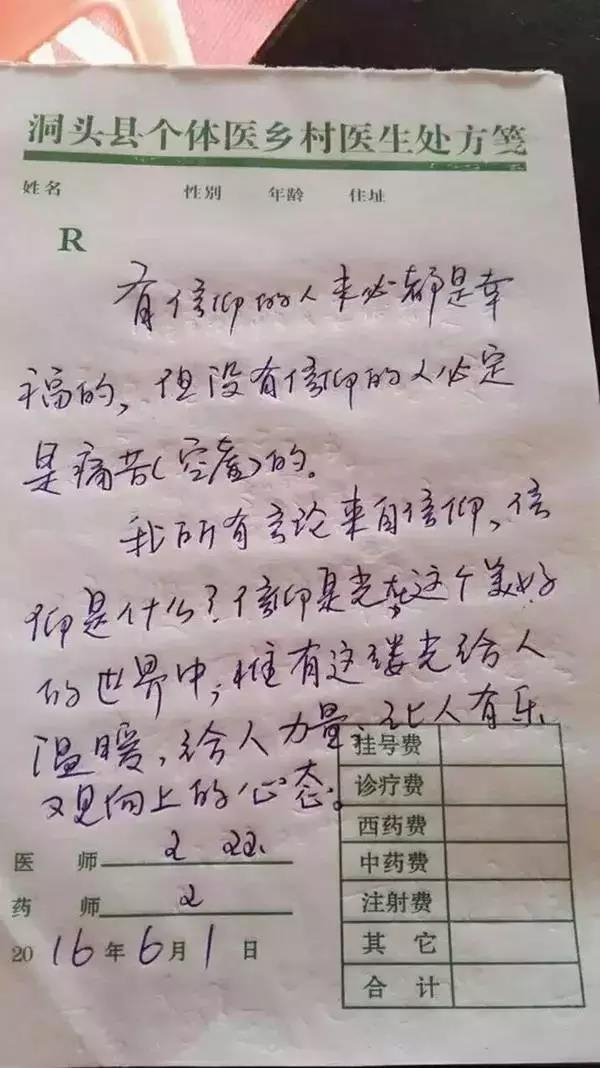 洞头县个体医乡村医生处方笺
姓名 性别 年龄 住址
R
有信仰的人未必都是幸
福的,但没有信仰的人必定
是痛苦(空虚)的。
我所有言论来自信仰,信
仰是什么?信仰是光,在这个美好
的世界中,惟有这缕光给人
温暖,给人力量,让人有乐
观向上的心态。
挂号费
诊疗费
西药费
中药费
注射费
其它
合计
医师
药师
2016年6月1日